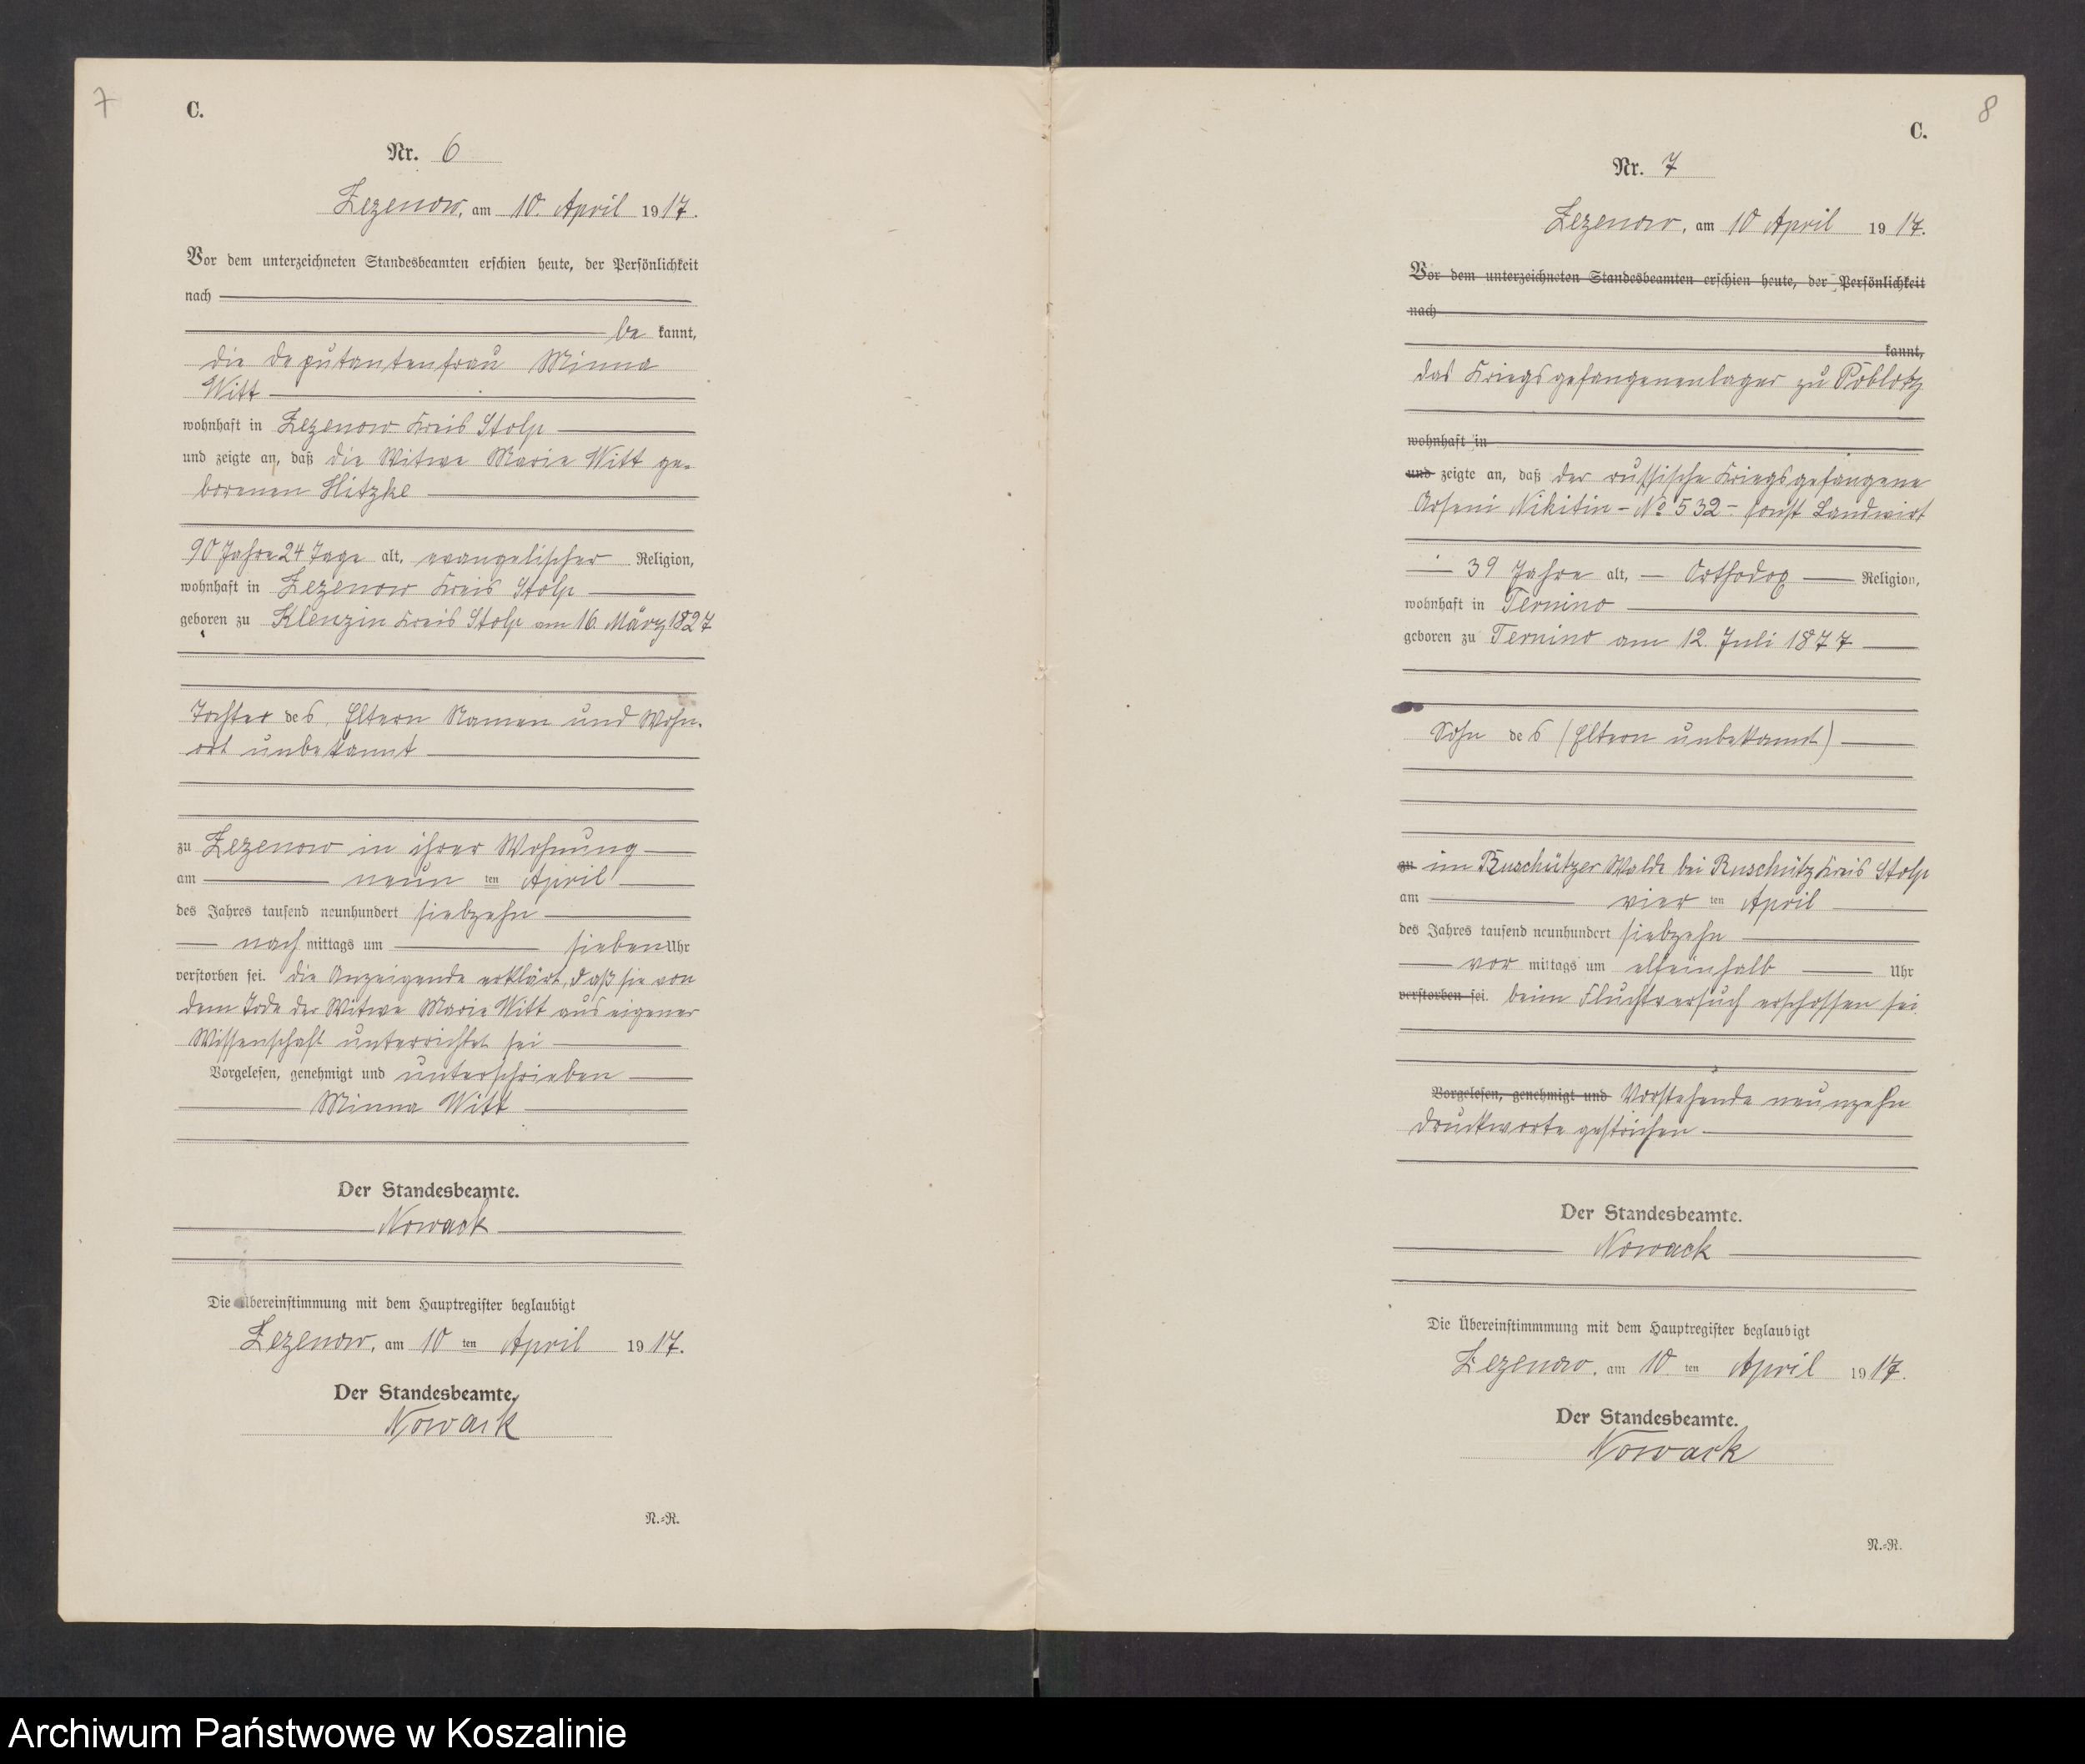 7
C.
Nr. 6
Zezenow, am 10. April 1917.
Vor dem unterzeichneten Standesbeamten erschien heute, der Persönlichkeit
nach
be kannt,
die Deputantenfrau Minna
Witt
wohnhaft in Zezenow Kreis Stolp
und zeigte an, daß die Witwe Marie Witt ge-
borenen Hitzke
90 Jahre 24 Tage alt, evangelischer Religion,
wohnhaft in Zezenow Kreis Stolp
geboren zu Klenzin Kreis Stolp am 16. März 1827
Tochter des, Eltern Namen und Wohn-
ort unbekannt
zu Zezenow in ihrer Wohnung
am neun ten April
des Jahres tausend neunhundert siebzehn
nach mittags um sieben Uhr
verstorben sei. Die Anzeigende erklärt, daß sie von
dem Tode der Witwe Marie Witt aus eigener
Wissenschaft unterrichtet sei
Vorgelesen, genehmigt und unterschrieben
Minna Witt
Der Standesbeamte.
Nowack
Die Übereinstimmung mit dem Hauptregister beglaubigt
Zezenow, am 10 ten April 1917.
Der Standesbeamte.
Nowack
N.=R.
8
C.
Nr. 7
Zezenow, am 10 April 1917.
Vor dem unterzeichneten Standesbeamten erschien heute, der Persönlichkeit
nach
kannt,
das Kriegsgefangenenlager zu Poblotz
wohnhaft in
und zeigte an, daß der russische Kriegsgefangene
Arseni Nikitin - No 532 - sonst Landwirt
39 Jahre alt, Orthodox Religion,
wohnhaft in Ternino
geboren zu Ternino am 12. Juli 1877
Sohn des (Eltern unbekannt)
zu im Ruschützer Walde bei Ruschütz Kreis Stolp
am vier ten April
des Jahres tausend neunhundert siebzehn
vor mittags um elfeinhalb Uhr
verstorben sei. beim Fluchtversuch erschossen sei.
Vorgelesen, genehmigt und Vorstehende neunzehn
Druckworte gestrichen
Der Standesbeamte.
Nowack
Die Übereinstimmmung mit dem Hauptregister beglaubigt
Zezenow, am 10. ten April 1917.
Der Standesbeamte.
Nowack
N.=R.
Archiwum Państwowe w Koszalinie